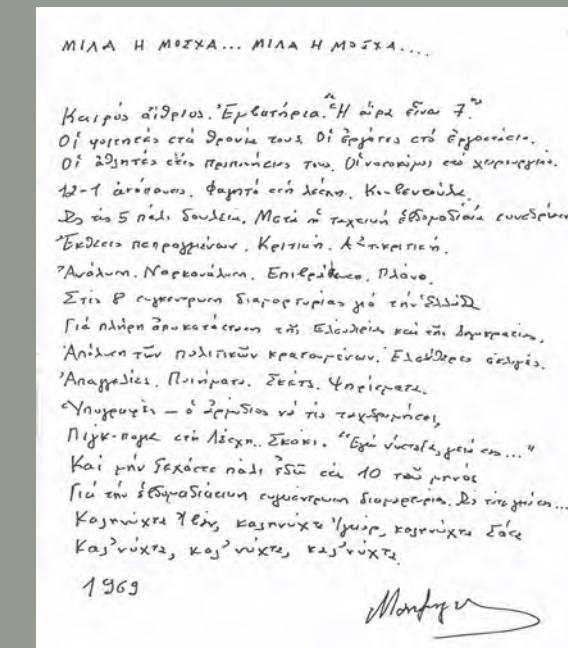 ΜΙΛΑ Η ΜΟΣΧΑ... ΜΙΛΑ Η ΜΟΣΧΑ....
Καιρός αἴθριος. Ἐμβατήρια. "Ἡ ὥρα εἶναι 7."
Οἱ φοιτητές στά θρανία τους. Οἱ ἐργάτες στό ἐργοστάσιο.
Οἱ ἀθλητές στίς προπονήσεις τους. Οἱ νοσοκόμες στό χειρουργεῖο.
12-1 ἀνάπαυση. Φαγητό στή λέσχη. Κουβεντούλα.
Ὡς τίς 5 πάλι δουλειά. Μετά ἡ ταχτική ἑβδομαδιαία συνεδρίαση
Ἔκθεση πεπραγμένων. Κριτική. Αὐτοκριτική.
Ἀνάλυση. Ναρκανάλυση. Ἐπιβράβευση. Πλάνο.
Στίς 8 συγκέντρωση διαμαρτυρίας γιά τήν Ἑλλάδα
Γιά πλήρη ἀποκατάσταση τῆς Ἐλευθερίας καί τῆς Δημοκρατίας.
Ἀπόλυση τῶν πολιτικῶν κρατουμένων. Ἐλεύθερες ἐκλογές.
Ἀπαγγελίες. Ποιήματα. Σκέτς. Ψηφίσματα.
Ὑπογραφές – ὁ ἁρμόδιος νά τίς ταχυδρομήσει,
Πιγκ-πογκ στή Λέσχη. Σκάκι. "Ἐγώ νύσταξα, γειά σας..."
Καί μήν ξεχάσετε πάλι ἐδῶ στίς 10 τοῦ μηνός
Γιά τήν ἑβδομαδιαία συγκέντρωση διαμαρτυρία. Ὡς τότε γειά σας...
Καληνύχτα, Ἰγκόρ, καληνύχτα Σάσα
Καλ' νύχτα, καλ' νύχτα, καλ' νύχτα.
1969